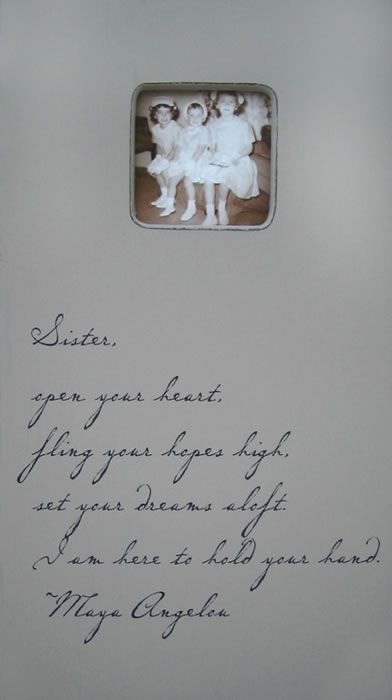 Sister,
open your heart,
fling your hopes high,
set your dreams aloft.
I am here to hold your hand.
~Maya Angelou